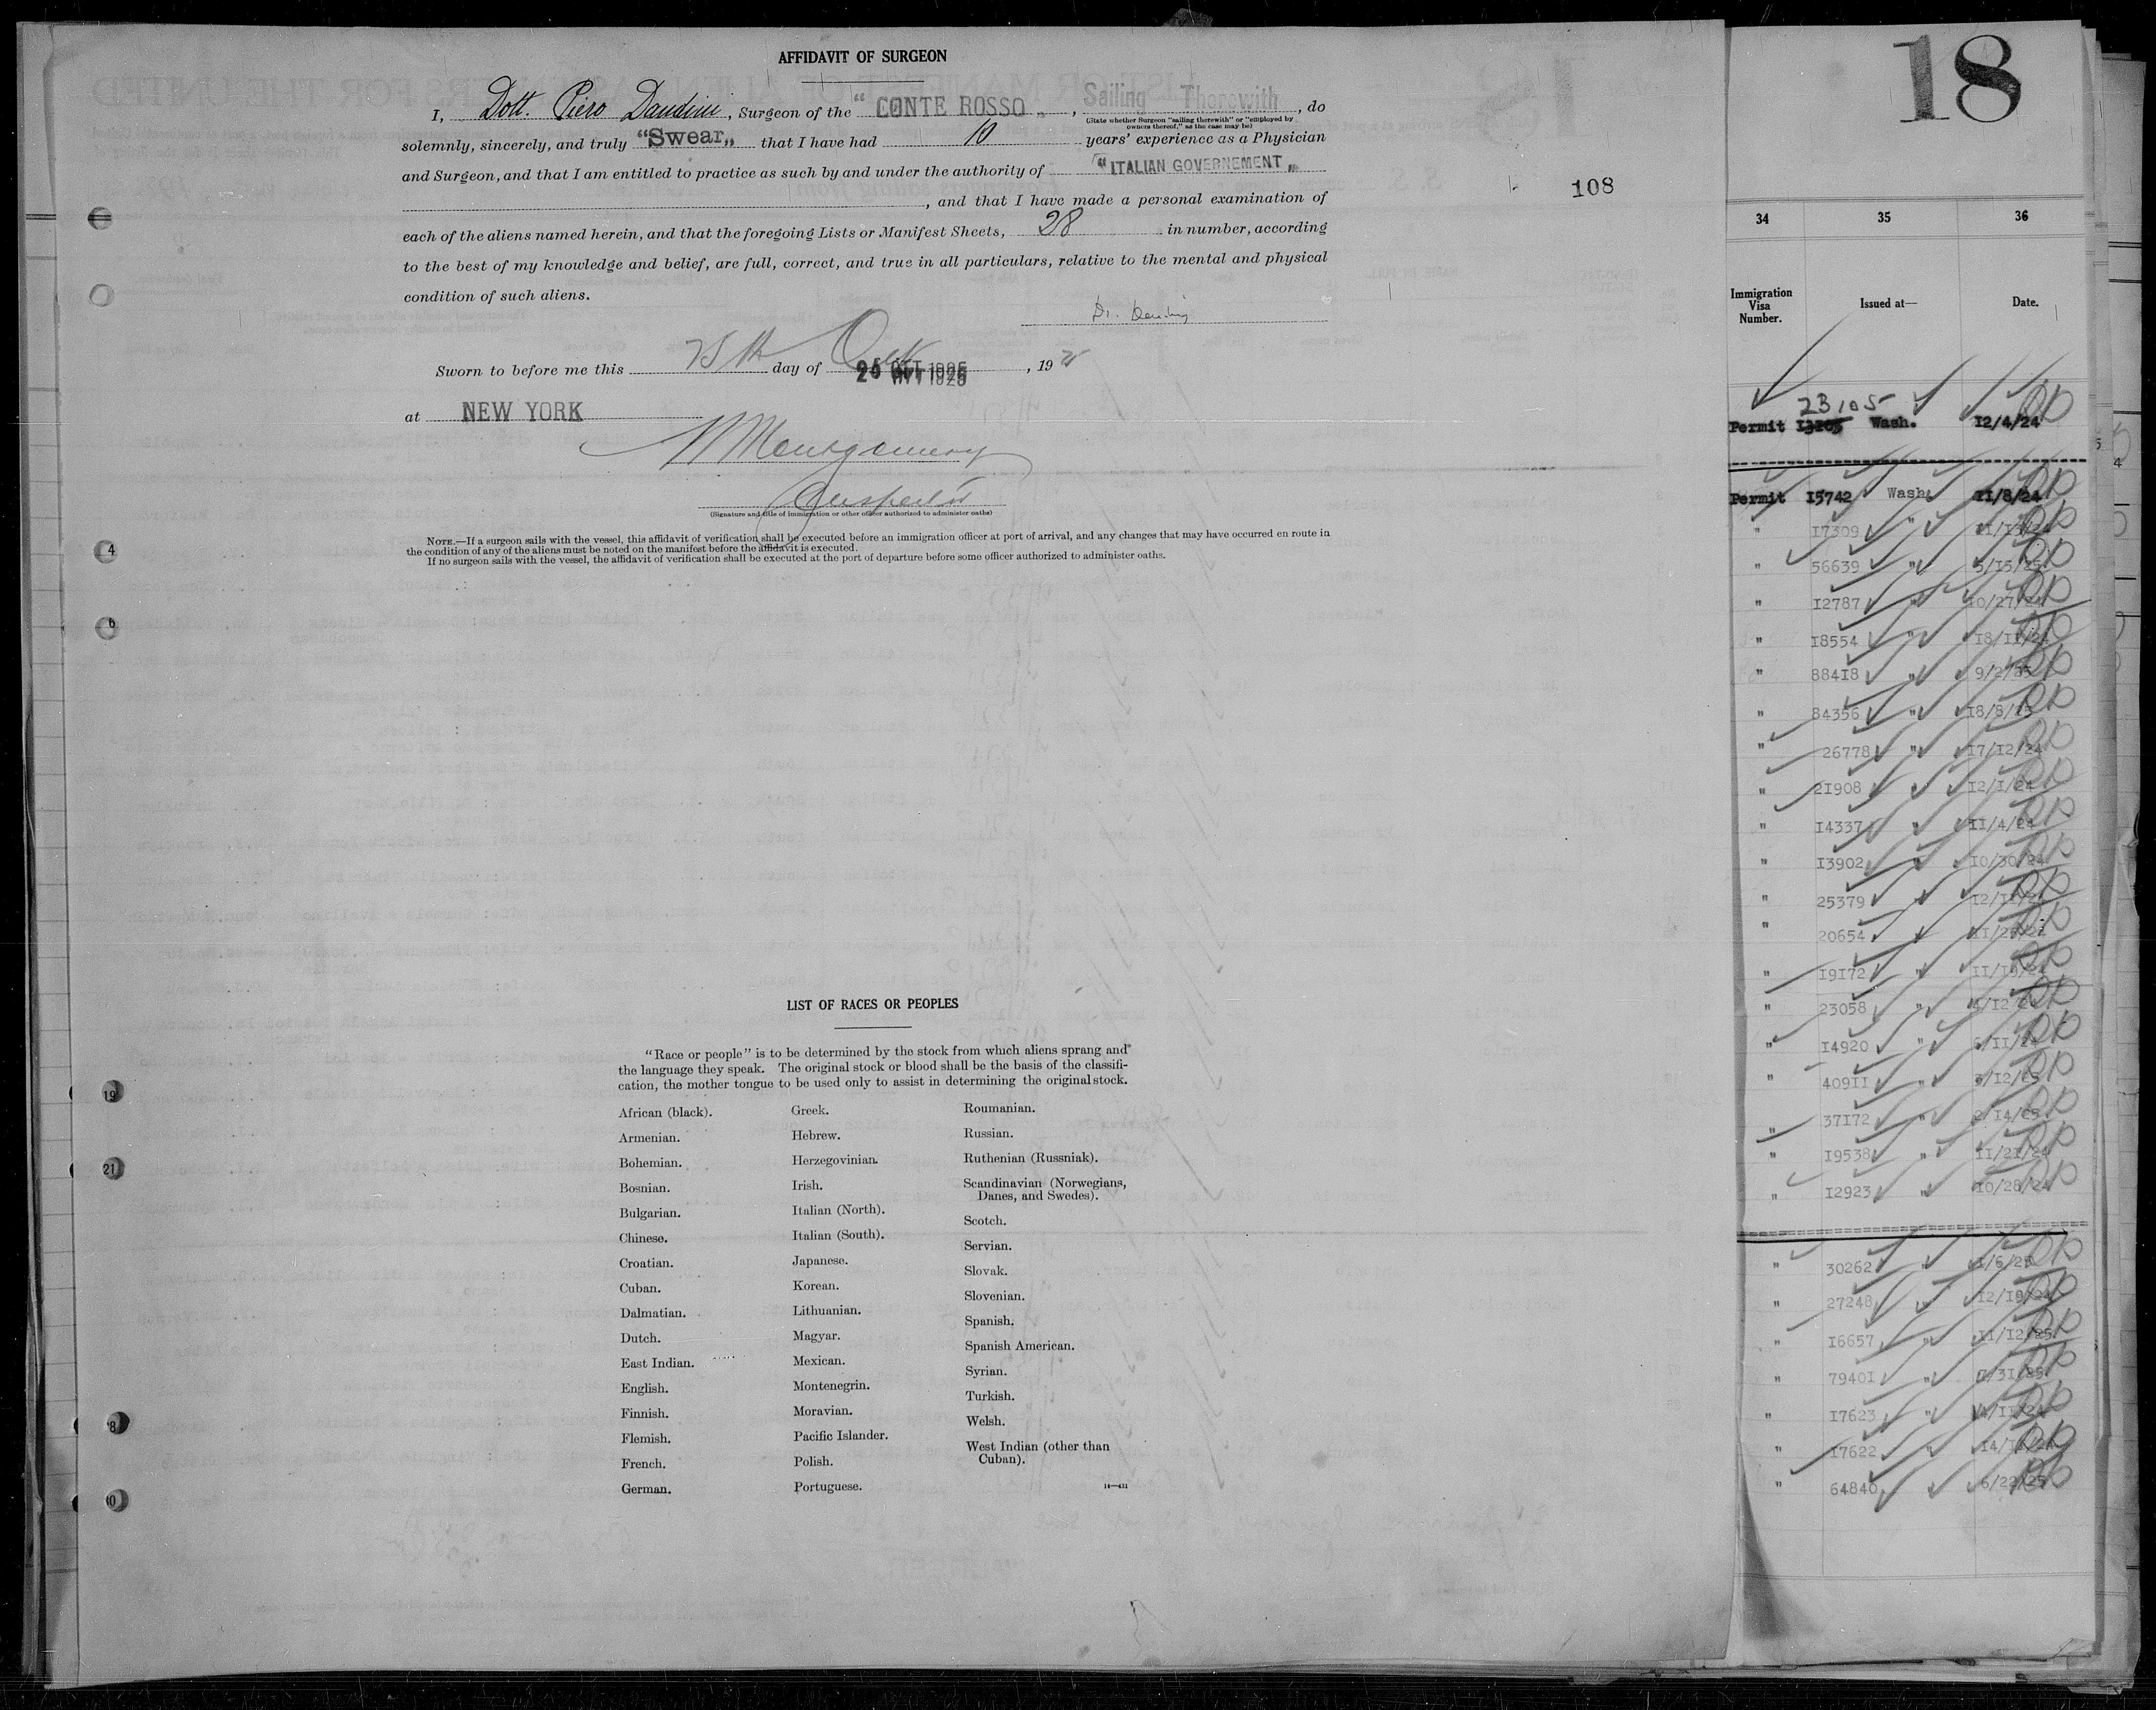 AFFIDAVIT OF SURGEON
I, Dott. Piero Dandini, Surgeon of the "CONTE ROSSO", Sailing Therewith, do
(State whether Surgeon "sailing therewith" or "employed by
owners thereof," as the case may be)
solemnly, sincerely, and truly "Swear" that I have had 10 years' experience as a Physician
and Surgeon, and that I am entitled to practice as such by and under the authority of "ITALIAN GOVERNEMENT"
, and that I have made a personal examination of
each of the aliens named herein, and that the foregoing Lists or Manifest Sheets, 28 in number, according
to the best of my knowledge and belief, are full, correct, and true in all particulars, relative to the mental and physical
condition of such aliens.
Dr. Dandini
Sworn to before me this 25th day of Oct , 192
at NEW YORK
Montgomery
Inspector
(Signature and title of immigration or other officer authorized to administer oaths)
NOTE.—If a surgeon sails with the vessel, this affidavit of verification shall be executed before an immigration officer at port of arrival, and any changes that may have occurred en route in
the condition of any of the aliens must be noted on the manifest before the affidavit is executed.
If no surgeon sails with the vessel, the affidavit of verification shall be executed at the port of departure before some officer authorized to administer oaths.
108
LIST OF RACES OR PEOPLES
"Race or people" is to be determined by the stock from which aliens sprang and
the language they speak. The original stock or blood shall be the basis of the classifi-
cation, the mother tongue to be used only to assist in determining the original stock.
African (black).
Armenian.
Bohemian.
Bosnian.
Bulgarian.
Chinese.
Croatian.
Cuban.
Dalmatian.
Dutch.
East Indian.
English.
Finnish.
Flemish.
French.
German.
Greek.
Hebrew.
Herzegovinian.
Irish.
Italian (North).
Italian (South).
Japanese.
Korean.
Lithuanian.
Magyar.
Mexican.
Montenegrin.
Moravian.
Pacific Islander.
Polish.
Portuguese.
Roumanian.
Russian.
Ruthenian (Russniak).
Scandinavian (Norwegians,
Danes, and Swedes).
Scotch.
Servian.
Slovak.
Slovenian.
Spanish.
Spanish American.
Syrian.
Turkish.
Welsh.
West Indian (other than
Cuban).
18
34 35 36
Immigration
Visa
Number.
Issued at—
Date.
23105
Permit 13105 Wash. 12/4/24
Permit 15742 Wash. 11/8/24
" 17309 " 11/13/24
" 56639 " 5/15/25
" 12787 " 10/27/24
" 18554 " 18/11/24
" 88418 " 9/2/25
" 84356 " 18/8/25
" 26778 " 17/12/24
" 21908 " 12/1/24
" 14337 " 11/4/24
" 13902 " 10/30/24
" 25379 " 12/11/24
" 20654 "
" 19172 " 11/19/24
" 23058 " 4/12/24
" 14920 " 5/11/24
" 40911 " 3/12/25
" 37172 " 2/14/25
" 19538 " 11/21/24
" 12923 " 10/28/24
" 30262 " 1/6/25
" 27248 " 12/19/24
" 16657 " 11/12/25
" 79401 " 7/31/25
" 17623 "
" 17622 "
" 64840 " 6/22/25
4
6
19
21